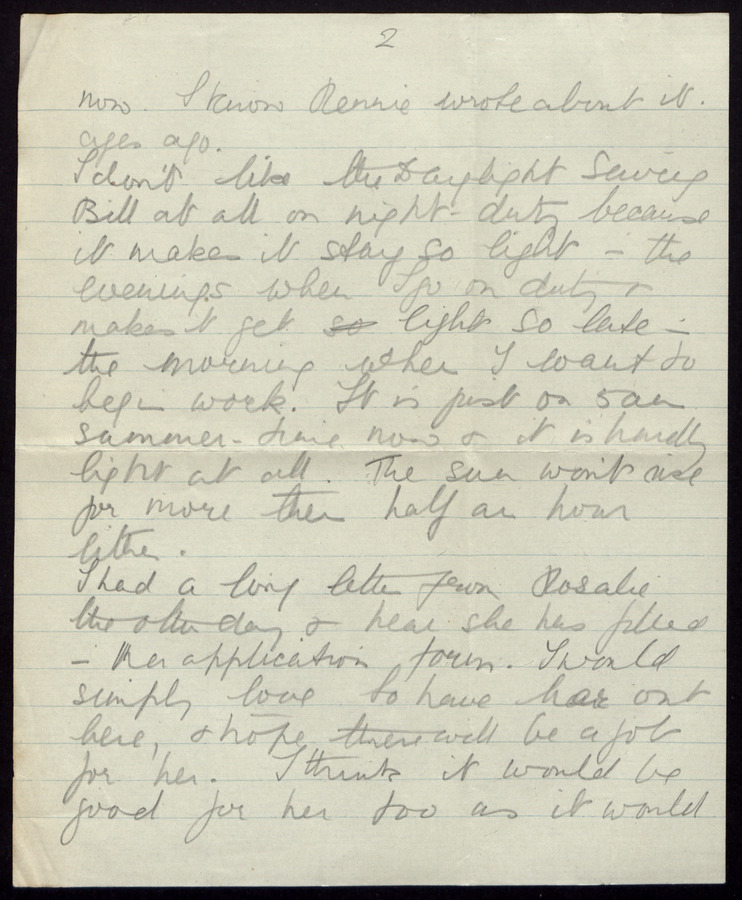 2
now. I know Rennie wrote about it.
ages ago.
I don't like the Daylight Saving
Bill at all on night-duty because
it makes it stay so light - the
evenings when I go on duty &
makes it get so light so late -
the morning when I want to
begin work. It is just on 5 am
summer-time now & it is hardly
light at all. The sun won't rise
for more then half an hour
either.
I had a long letter from Rosalie
the other day & hear she has filled
- her application form. I would
simply love to have her out
here, & hope there will be a job
for her. I think it would be
good for her too as it would